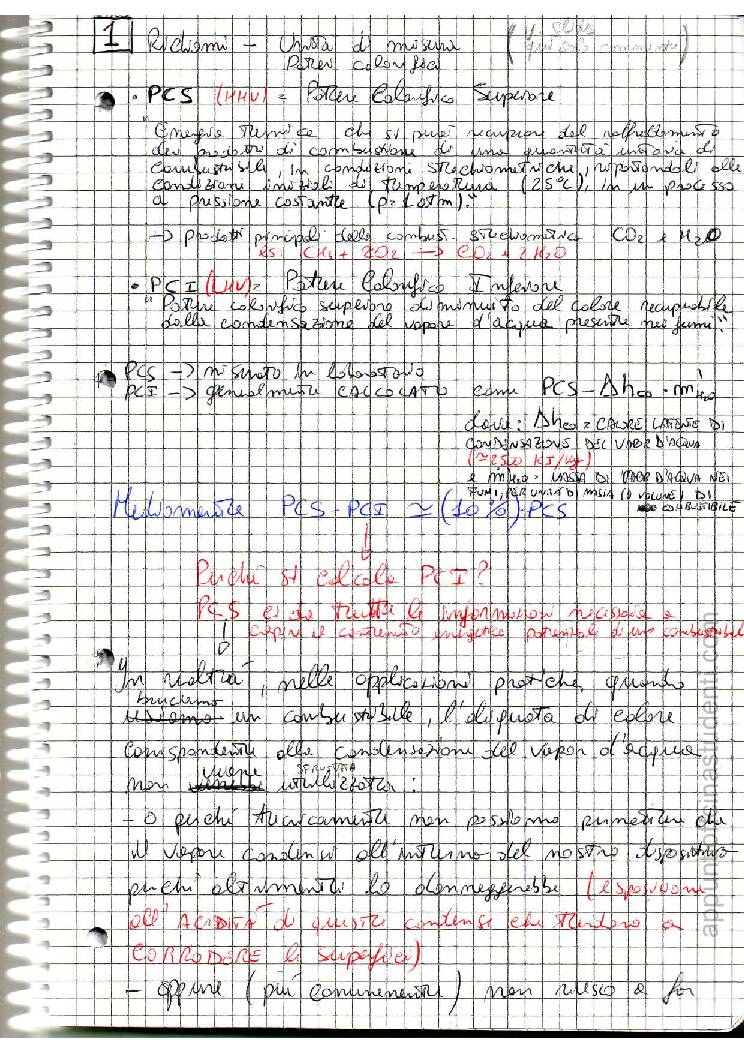 1 Richiami - Unità di misura (v. slides
Poteri calorifici qui solo commento)
• PCS (HHV) = Potere Calorifico Superiore
"Energia termica che si può recuperare dal raffreddamento
dei prodotti di combustione di una quantità unitaria di
combustibile, in condizioni stechiometriche, riportandoli alle
condizioni iniziali di temperatura (25°C), in un processo
a pressione costante (p=1 atm)."
→ prodotti principali della combust. stechiometrica CO2 e H2O
es: CH4 + 2O2 → CO2 + 2H2O
• PCI (LHV) = Potere Calorifico Inferiore
"Potere calorifico superiore diminuito del calore recuperabile
dalla condensazione del vapore d'acqua presente nei fumi."
PCS → misurato in laboratorio
PCI → generalmente CALCOLATO come PCS - Δhco · m'H2O
dove: Δhco = CALORE LATENTE DI
CONDENSAZIONE DEL VAPOR D'ACQUA
(≃2500 KJ/kg)
e m'H2O = MASSA DI VAPOR D'ACQUA NEI
FUMI, PER UNITÀ DI MASSA (O VOLUME) DI
COMBUSTIBILE
Mediamente PCS - PCI ≃ (10%)·PCS
↓
Perché si calcola PCI?
PCS ci dà tutte le informazioni necessarie a
capire il contenuto energetico potenziale di un combustibile
↓
"In realtà, nelle applicazioni pratiche, quando
bruciamo
un combustibile, l'aliquota di calore
corrispondente alla condensazione del vapor d'acqua
viene SFRUTTATA
non utilizzata:
- o perché tecnicamente non possiamo permettere che
il vapore condensi all'interno del nostro dispositivo
perché altrimenti lo danneggerebbe (esposizione
all'ACIDITÀ di queste condense che tendono a
CORRODERE le superfici)
- oppure (più comunemente) non riesco a far
appuntiofficinastudenti.com